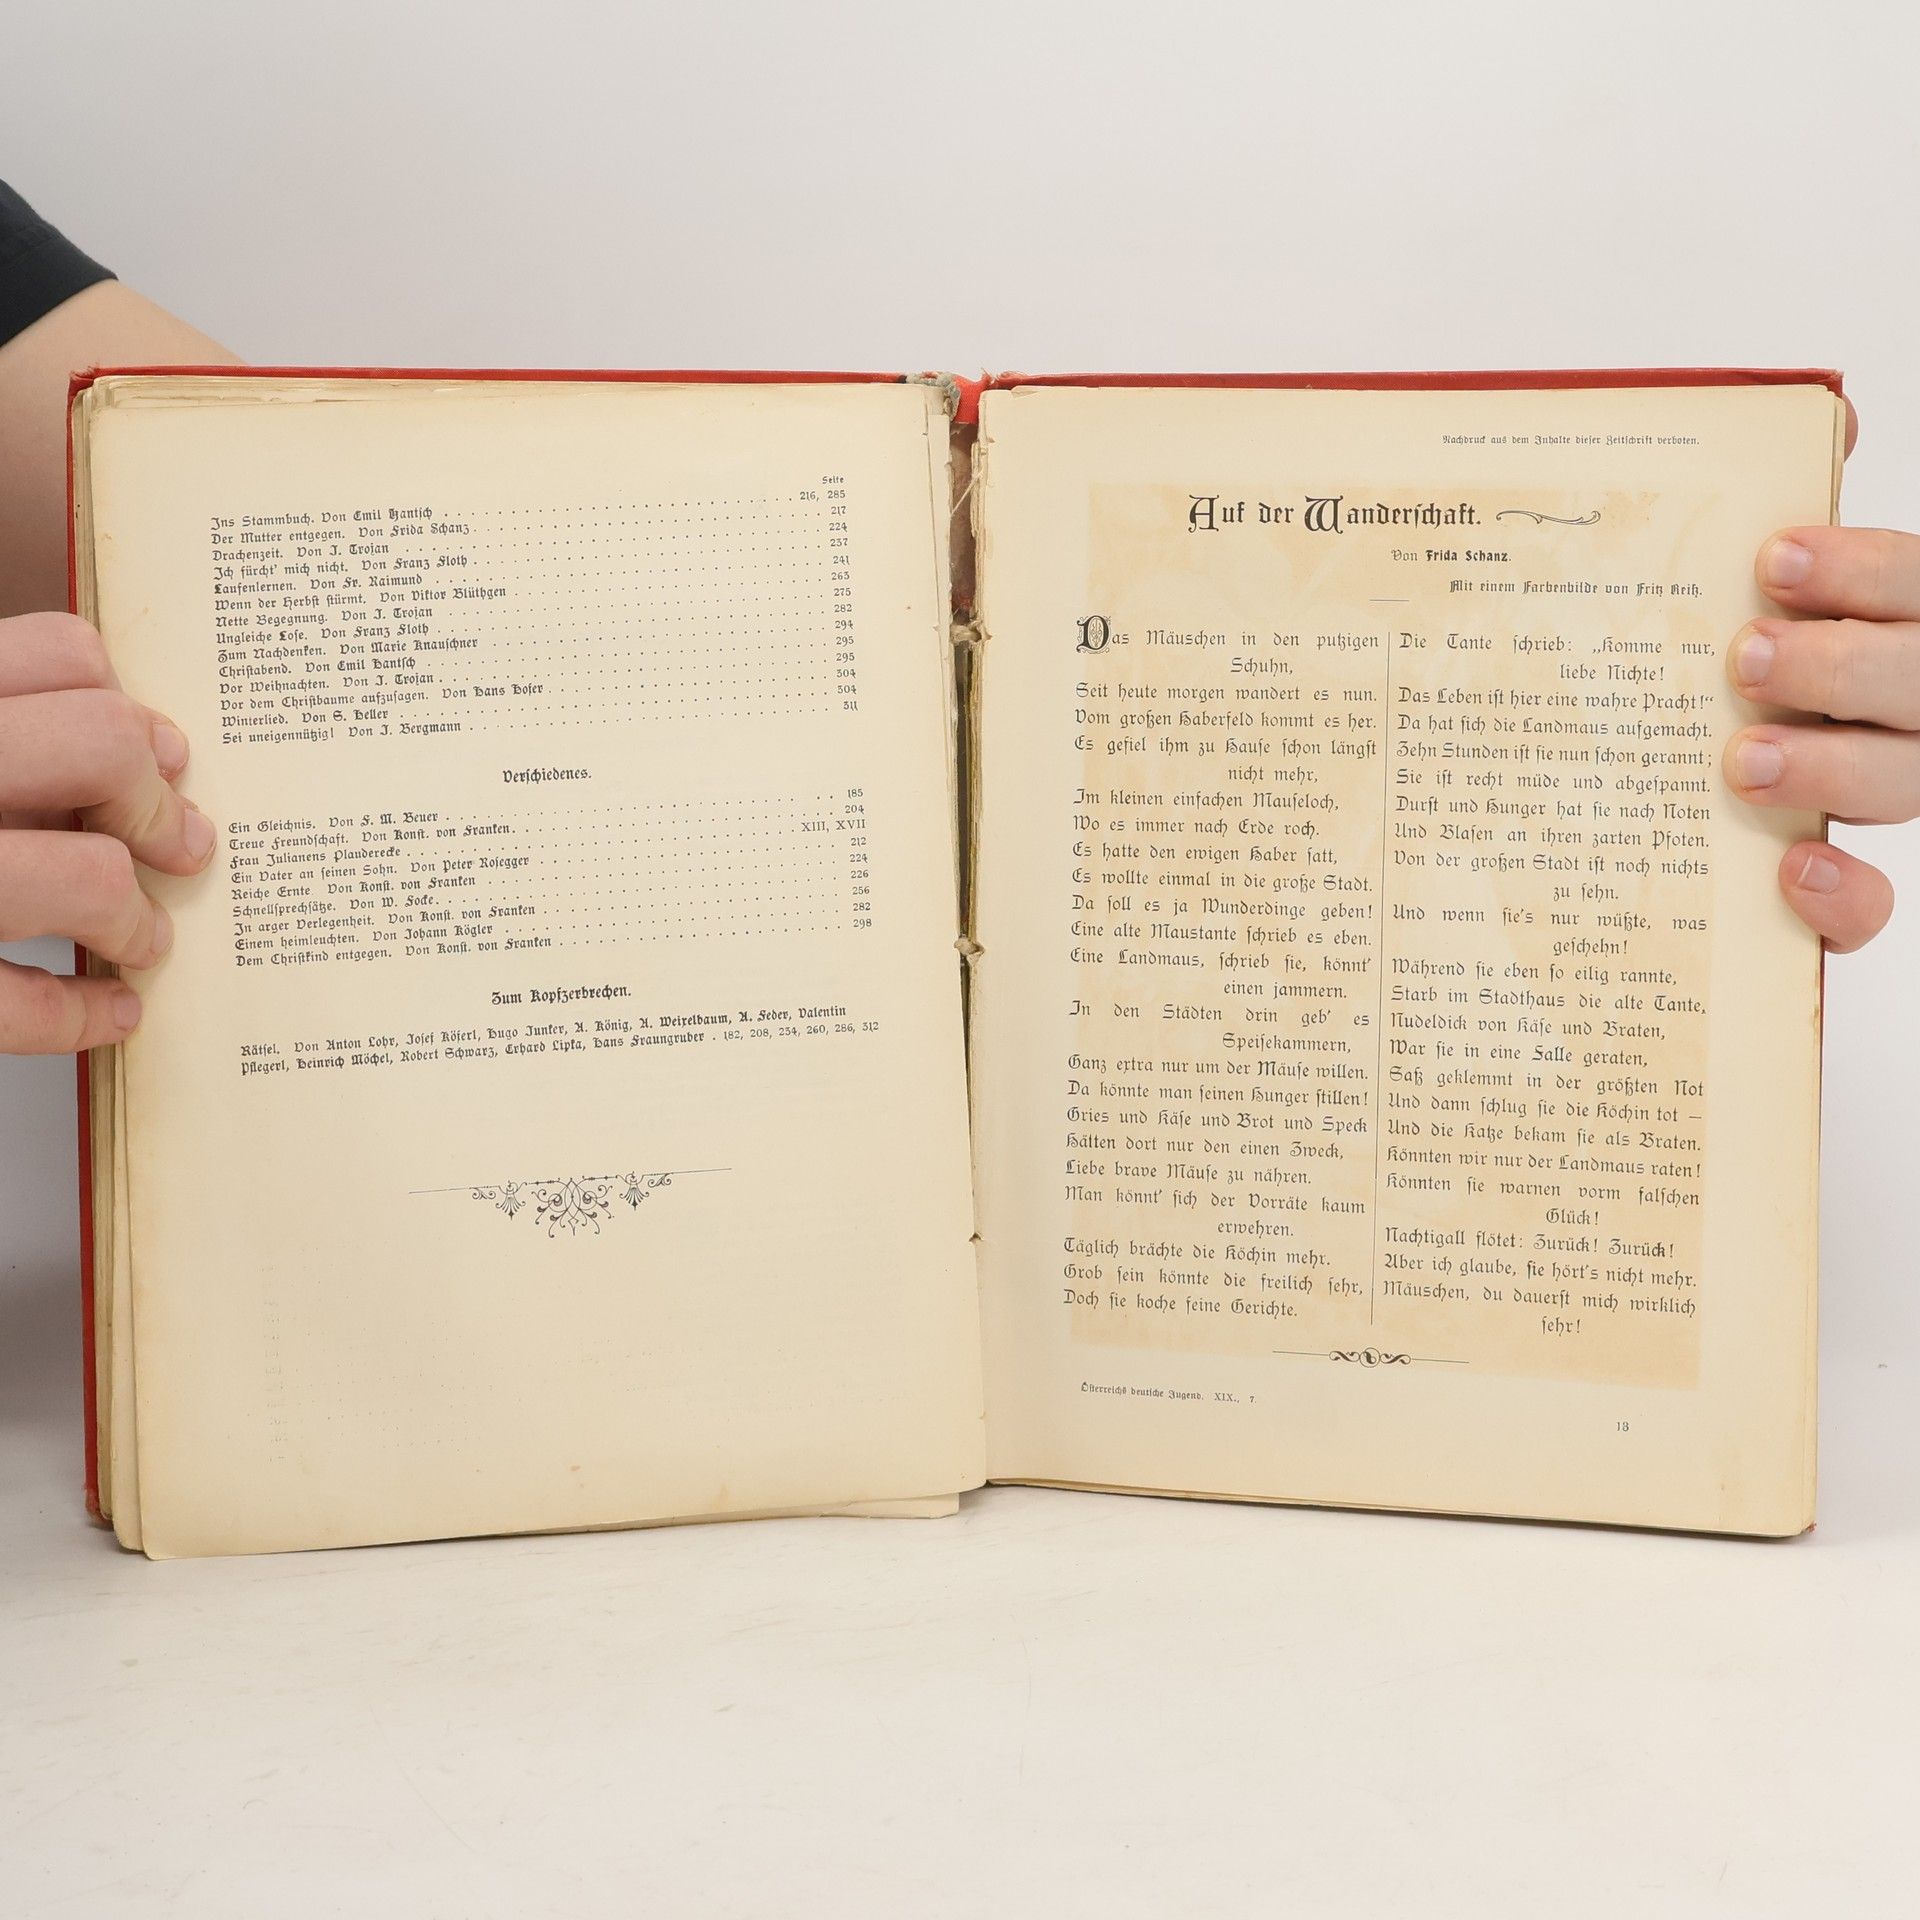 Seite
Ins Stammbuch. Von Emil Hantsch . . . 216, 285
Der Mutter entgegen. Von Frida Schanz . . . 217
Drachenzeit. Von J. Trojan . . . 224
Ich fürcht' mich nicht. Von Franz Floth . . . 237
Laufenlernen. Von Fr. Raimund . . . 241
Wenn der Herbst stürmt. Von Viktor Blüthgen . . . 263
Nette Begegnung. Von J. Trojan . . . 275
Ungleiche Lose. Von Franz Floth . . . 282
Zum Nachdenken. Von Marie Knauschner . . . 294
Christabend. Von Emil Hantsch . . . 295
Vor Weihnachten. Von J. Trojan . . . 295
Vor dem Christbaume aufzusagen. Von Hans Hofer . . . 304
Winterlied. Von S. Heller . . . 304
Sei uneigennützig! Von J. Bergmann . . . 311
Verschiedenes.
Ein Gleichnis. Von F. M. Beuer . . . 185
Treue Freundschaft. Von Konst. von Franken . . . 204
Frau Julianens Plauderecke . . . XIII, XVII
Ein Vater an seinen Sohn. Von Peter Rosegger . . . 212
Reiche Ernte Von Konst. von Franken . . . 224
Schnellsprechsätze. Von W. Focke . . . 226
In arger Verlegenheit. Von Konst. von Franken . . . 256
Einem heimleuchten. Von Johann Kögler . . . 282
Dem Christkind entgegen. Von Konst. von Franken . . . 298
Zum Kopfzerbrechen.
Rätsel. Von Anton Lohr, Josef Köferl, Hugo Junker, A. König, A. Weixelbaum, A. Feder, Valentin
Pflegerl, Heinrich Möchel, Robert Schwarz, Erhard Lipka, Hans Fraungruber . 182, 208, 234, 260, 286, 312
Nachdruck aus dem Inhalte dieser Zeitschrift verboten.
Auf der Wanderschaft.
Von Frida Schanz.
Mit einem Farbenbilde von Fritz Reiß.
Das Mäuschen in den putzigen
Schuhn,
Seit heute morgen wandert es nun.
Vom großen Haberfeld kommt es her.
Es gefiel ihm zu Hause schon längst
nicht mehr,
Im kleinen einfachen Mauseloch,
Wo es immer nach Erde roch.
Es hatte den ewigen Haber satt,
Es wollte einmal in die große Stadt.
Da soll es ja Wunderdinge geben!
Eine alte Maustante schrieb es eben.
Eine Landmaus, schrieb sie, könnt'
einen jammern.
In den Städten drin geb' es
Speisekammern,
Ganz extra nur um der Mäuse willen.
Da könnte man seinen Hunger stillen!
Gries und Käse und Brot und Speck
Hätten dort nur den einen Zweck,
Liebe brave Mäuse zu nähren.
Man könnt' sich der Vorräte kaum
erwehren.
Täglich brächte die Köchin mehr.
Grob sein könnte die freilich sehr,
Doch sie koche feine Gerichte.
Die Tante schrieb: „Komme nur,
liebe Nichte!
Das Leben ist hier eine wahre Pracht!“
Da hat sich die Landmaus aufgemacht.
Zehn Stunden ist sie nun schon gerannt;
Sie ist recht müde und abgespannt.
Durst und Hunger hat sie nach Noten
Und Blasen an ihren zarten Pfoten.
Von der großen Stadt ist noch nichts
zu sehn.
Und wenn sie's nur wüßte, was
geschehn!
Während sie eben so eilig rannte,
Starb im Stadthaus die alte Tante,
Nudeldick von Käse und Braten,
War sie in eine Falle geraten,
Saß geklemmt in der größten Not
Und dann schlug sie die Köchin tot —
Und die Katze bekam sie als Braten.
Könnten wir nur der Landmaus raten!
Könnten sie warnen vorm falschen
Glück!
Nachtigall flötet: Zurück! Zurück!
Aber ich glaube, sie hört's nicht mehr.
Mäuschen, du dauerst mich wirklich
sehr!
Österreichs deutsche Jugend. XIX., 7.
13